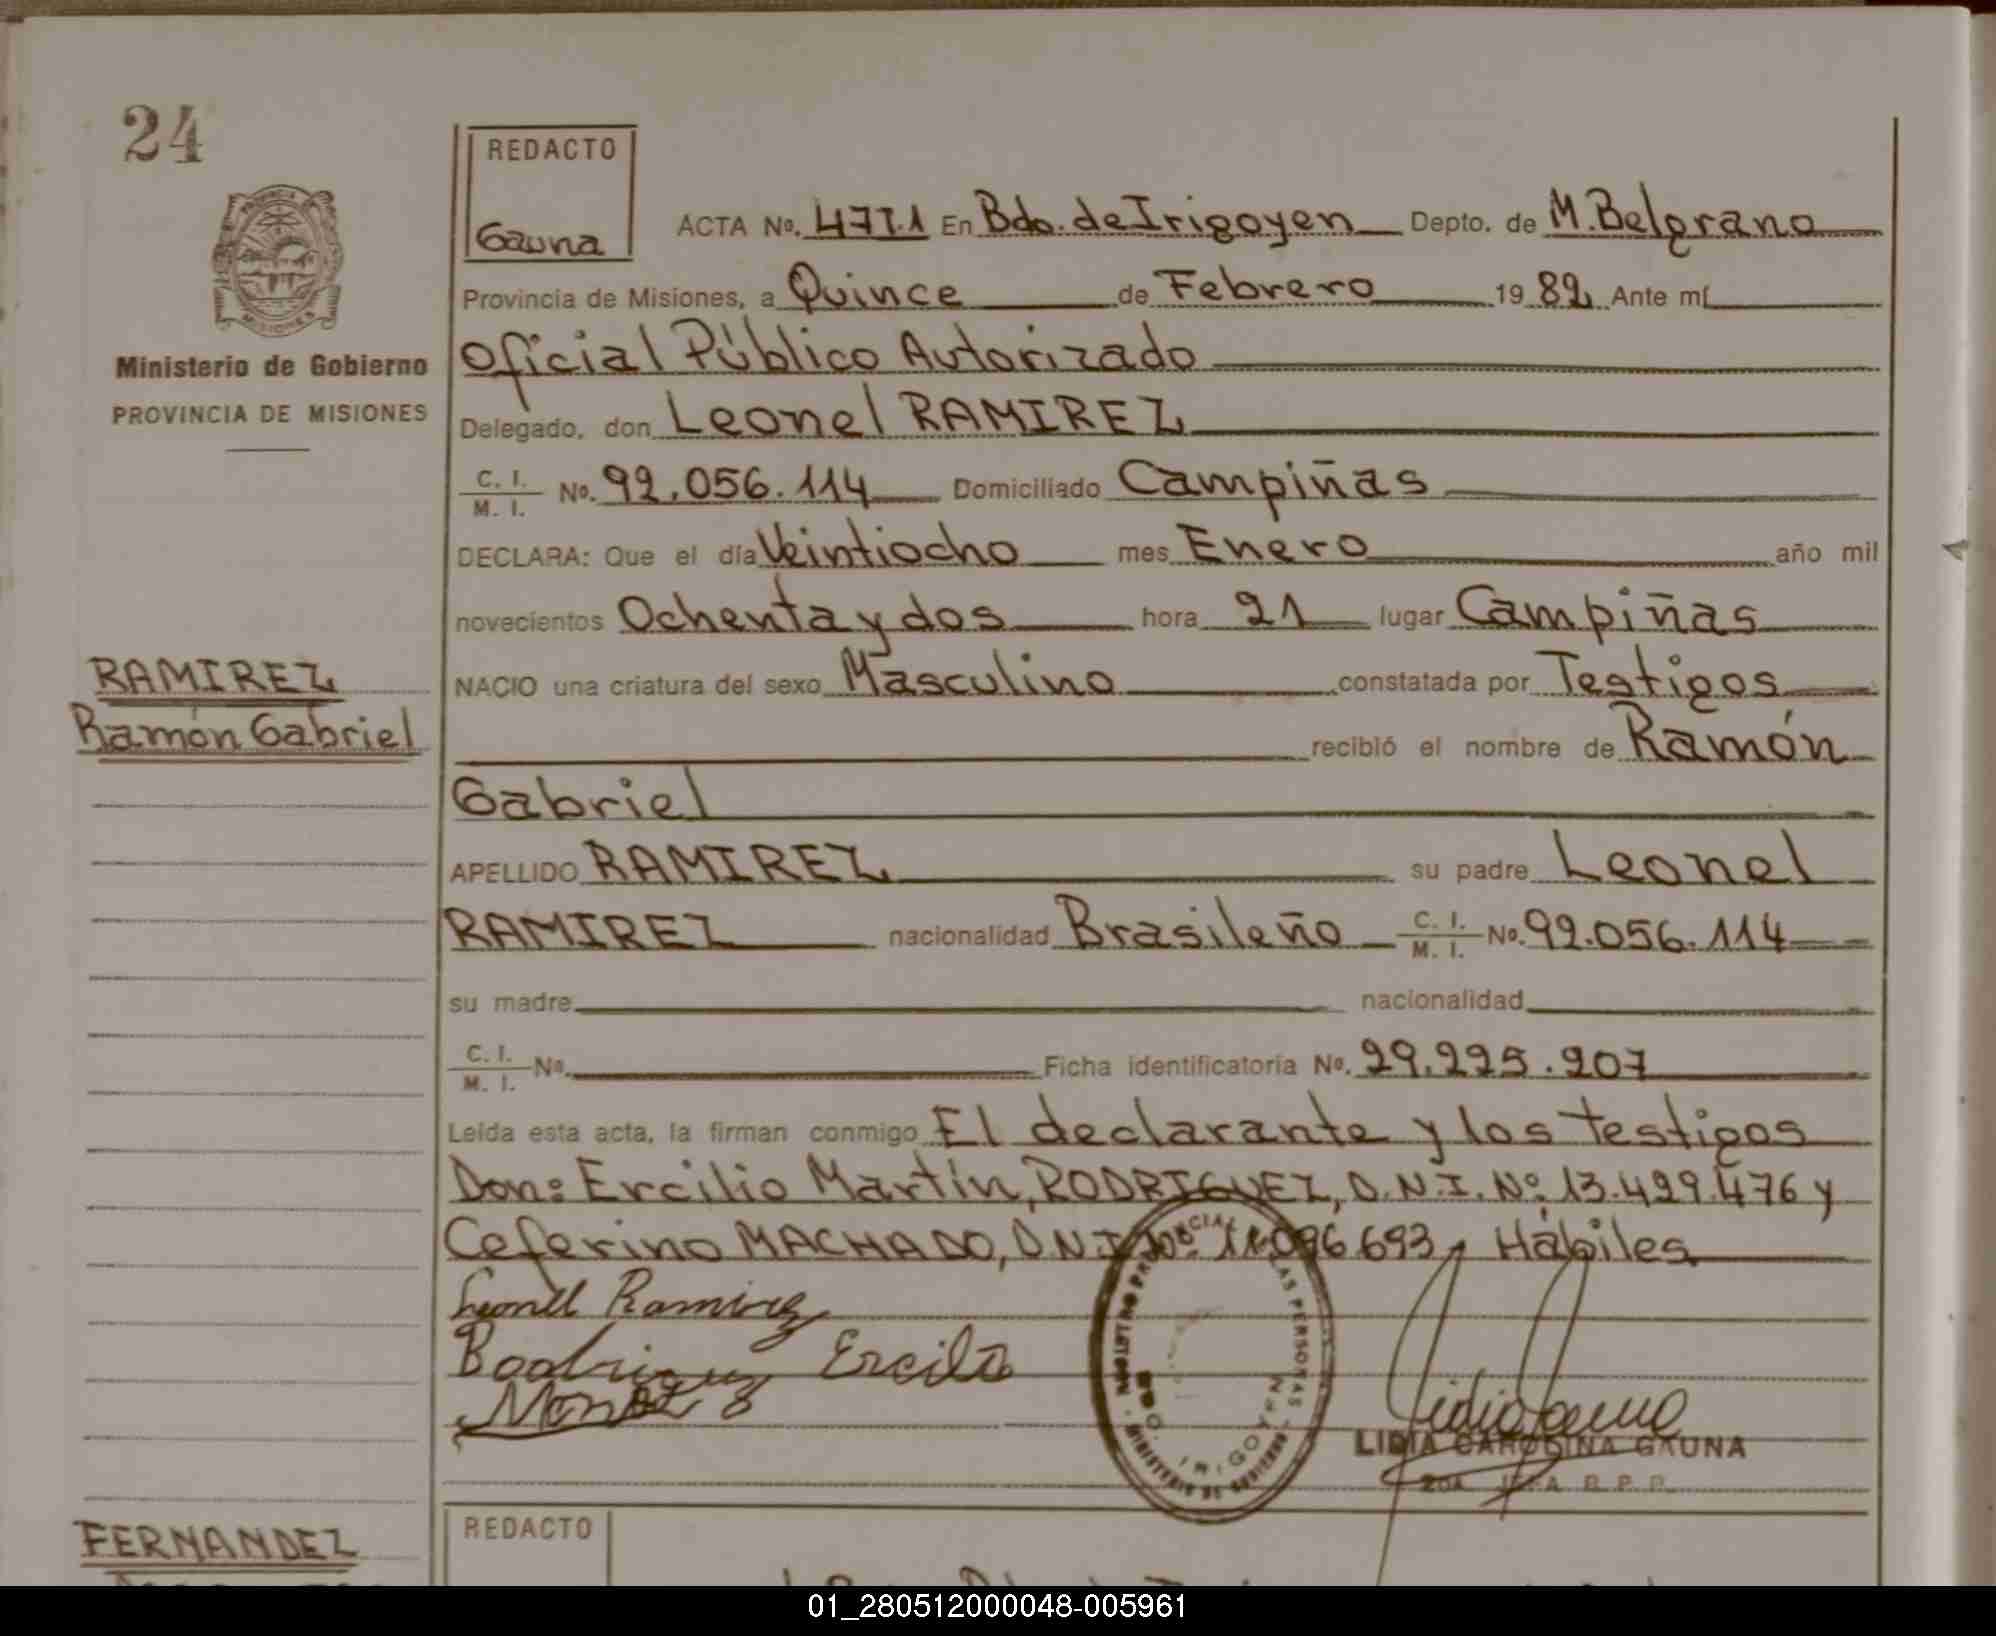 24
REDACTO
Gauna
ACTA No. 477.1 En Bdo. de Irigoyen Depto. de M. Belgrano
Provincia de Misiones, a Quince de Febrero 19 82 Ante mí
Oficial Público Autorizado
Ministerio de Gobierno
PROVINCIA DE MISIONES
Delegado, don Leonel RAMIREZ
C. I. M. I. No. 92.056.114 Domiciliado Campiñas
DECLARA: Que el día Veintiocho mes Enero año mil
novecientos Ochenta y dos hora 21 lugar Campiñas
RAMIREZ
Ramón Gabriel
NACIO una criatura del sexo Masculino constatada por Testigos
recibió el nombre de Ramón
Gabriel
APELLIDO RAMIREZ su padre Leonel
RAMIREZ nacionalidad Brasileño C. I. M. I. No. 92.056.114
su madre nacionalidad
C. I. M. I. No. Ficha identificatoria No. 29.225.207
Leída esta acta, la firman conmigo El declarante y los testigos
Don: Ercilio Martín, RODRIGUEZ, D.N.I. Nº 13.429.476 y
Ceferino MACHADO, D.N.I. Nº 11.096.693, Hábiles
Leonel Ramirez
Rodriguez Ercilio
LIDIA CAROLINA GAUNA
FERNANDEZ
REDACTO
01_280512000048-005961